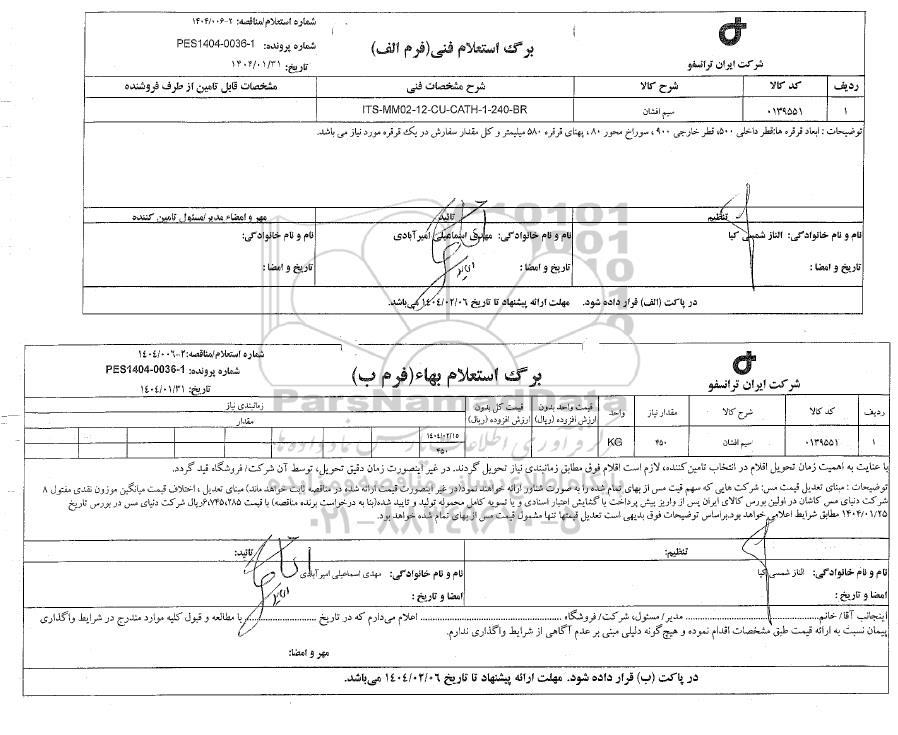 شماره استعلام/مناقصه: ۱۴۰۴/۰۰۶-۲
شماره پرونده: PES1404-0036-1
تاریخ: ۱۴۰۴/۰۱/۳۱
برگ استعلام فنی(فرم الف)
شرکت ایران ترانسفو
ردیف کد کالا شرح کالا شرح مشخصات فنی مشخصات قابل تامین از طرف فروشنده
۱ ۰۱۳۹۵۵۱ سیم افشان ITS-MM02-12-CU-CATH-1-240-BR
توضیحات : ابعاد قرقره ها:قطر داخلی ۵۰۰، قطر خارجی ۹۰۰ ، سوراخ محور ۸۰ ، پهنای قرقره ۵۸۰ میلیمتر و کل مقدار سفارش در یک قرقره مورد نیاز می باشد.
تنظیم تائید مهر و امضاء مدیر/مسئول تامین کننده
نام و نام خانوادگی: الناز شمسی کیا نام و نام خانوادگی: مهدی اسماعیلی امیرآبادی نام و نام خانوادگی:
تاریخ و امضا : تاریخ و امضا : تاریخ و امضا :
در پاکت (الف) قرار داده شود. مهلت ارائه پیشنهاد تا تاریخ ۱۴۰۴/۰۲/۰۶ می‌باشد.
شماره استعلام/مناقصه: ۱۴۰۴/۰۰۶-۲
شماره پرونده: PES1404-0036-1
تاریخ: ۱۴۰۴/۰۱/۳۱
برگ استعلام بهاء(فرم ب)
شرکت ایران ترانسفو
ردیف کد کالا شرح کالا مقدار نیاز واحد قیمت واحد بدون ارزش افزوده (ریال) قیمت کل بدون ارزش افزوده (ریال) زمانبندی نیاز
مقدار
۱۴۰۴/۰۲/۱۵
۱ ۰۱۳۹۵۵۱ سیم افشان ۴۵۰ KG ۴۵۰
با عنایت به اهمیت زمان تحویل اقلام در انتخاب تامین‌کننده، لازم است اقلام فوق مطابق زمانبندی نیاز تحویل گردند. در غیر اینصورت زمان دقیق تحویل، توسط آن شرکت/ فروشگاه قید گردد.
توضیحات : مبنای تعدیل قیمت مس: شرکت هایی که سهم قیت مس از بهای تمام شده را به صورت شناور ارائه خواهند نمود(در غیر اینصورت قیمت ارائه شده در مناقصه ثابت خواهد ماند) مبنای تعدیل ، اختلاف قیمت میانگین موزون نقدی مفتول ۸
شرکت دنیای مس کاشان در اولین بورس کالای ایران پس از واریز پیش پرداخت یا گشایش اعتبار اسنادی و یا تسویه کامل محموله تولید و تایید شده(بنا به درخواست برنده مناقصه) با قیمت ۶،۷۴۵،۲۸۵ریال شرکت دنیای مس در بورس تاریخ
۱۴۰۴/۰۱/۲۵ مطابق شرایط اعلامی خواهد بود.براساس توضیحات فوق بدیهی است تعدیل قیمتها تنها مشمول قیمت مس از بهای تمام شده خواهد بود.
تنظیم: تائید:
نام و نام خانوادگی: الناز شمسی کیا نام و نام خانوادگی: مهدی اسماعیلی امیرآبادی
امضا و تاریخ : امضا و تاریخ :
اینجانب آقا/ خانم................ مدیر/ مسئول، شرکت/ فروشگاه ................ اعلام می‌دارم که در تاریخ ................ با مطالعه و قبول کلیه موارد مندرج در شرایط واگذاری
پیمان نسبت به ارائه قیمت طبق مشخصات اقدام نموده و هیچ‌گونه دلیلی مبنی بر عدم آگاهی از شرایط واگذاری ندارم.
مهر و امضا:
در پاکت (ب) قرار داده شود. مهلت ارائه پیشنهاد تا تاریخ ۱۴۰۴/۰۲/۰۶ می‌باشد.
ParsNamadData
۰۲۱-۸۸۳۴۹۶۷۰-۵